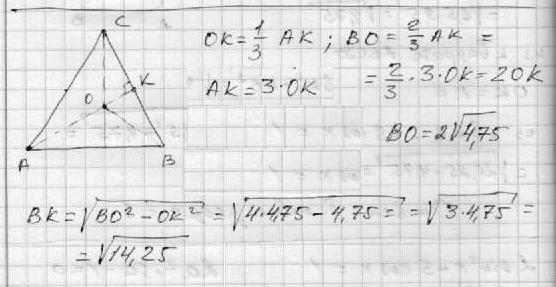 C
OK = 1/3 AK ; BO = 2/3 AK =
K
AK = 3·OK = 2/3 · 3·OK = 2OK
O
BO = 2√4,75
A B
BK = √BO² - OK² = √4·4,75 - 4,75 = = √3·4,75 =
= √14,25